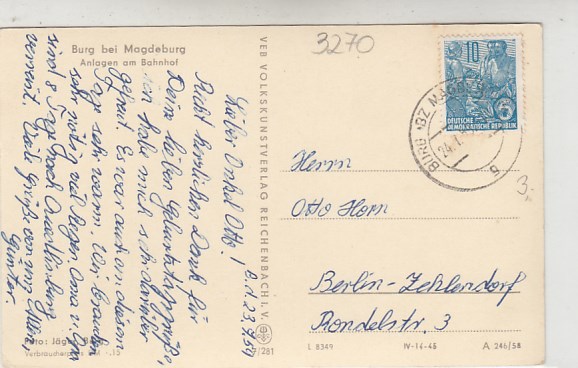 Burg bei Magdeburg
Anlagen am Bahnhof
B. d. 23.7.59
Lieber Onkel Otto!
Recht herzlichen Dank für
Deine lieben Geburtstagsgrüße,
ich habe mich sehr darüber
gefreut. Es war auch an diesem
Tag sehr warm. Wir brauchen
sehr nötig viel Regen. Oma u.
sind 8 Tage nach Quedlinburg
verreist. Viele Grüße von uns allen,
Günter.
Foto: Jäger, Burg
Verbraucherpreis DM -.15
VEB VOLKSKUNSTVERLAG REICHENBACH i. V.
/281
3270
10
DEUTSCHE
DEMOKRATISCHE REPUBLIK
BURG BZ MAGDEBURG
24.7.
3.-
Herrn
Otto Horn
Berlin-Zehlendorf
Rondelstr. 3
L 8349
IV-14-45
A 246/58